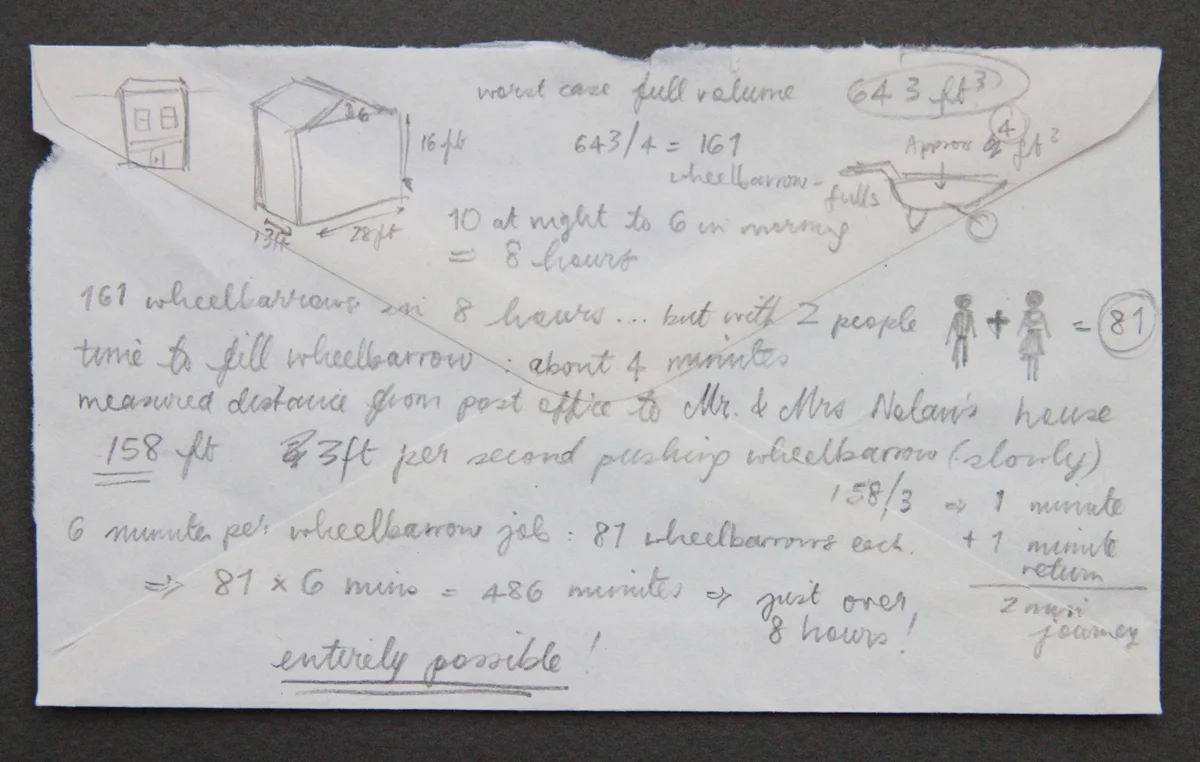 worst case full volume 643 ft³
26
16 ft
13ft
28 ft
643/4 = 161
wheelbarrow-
fulls
Approx 4 ft³
10 at night to 6 in morning
= 8 hours
161 wheelbarrows in 8 hours... but with 2 people + = 81
time to fill wheelbarrow : about 4 minutes
measured distance from post office to Mr. & Mrs Nolan's house
158 ft 3ft per second pushing wheelbarrow (slowly)
158/3 ⇒ 1 minute
+ 1 minute
return
2 min
journey
6 minutes per wheelbarrow job : 81 wheelbarrows each.
⇒ 81 × 6 mins = 486 minutes ⇒ just over
8 hours!
entirely possible!